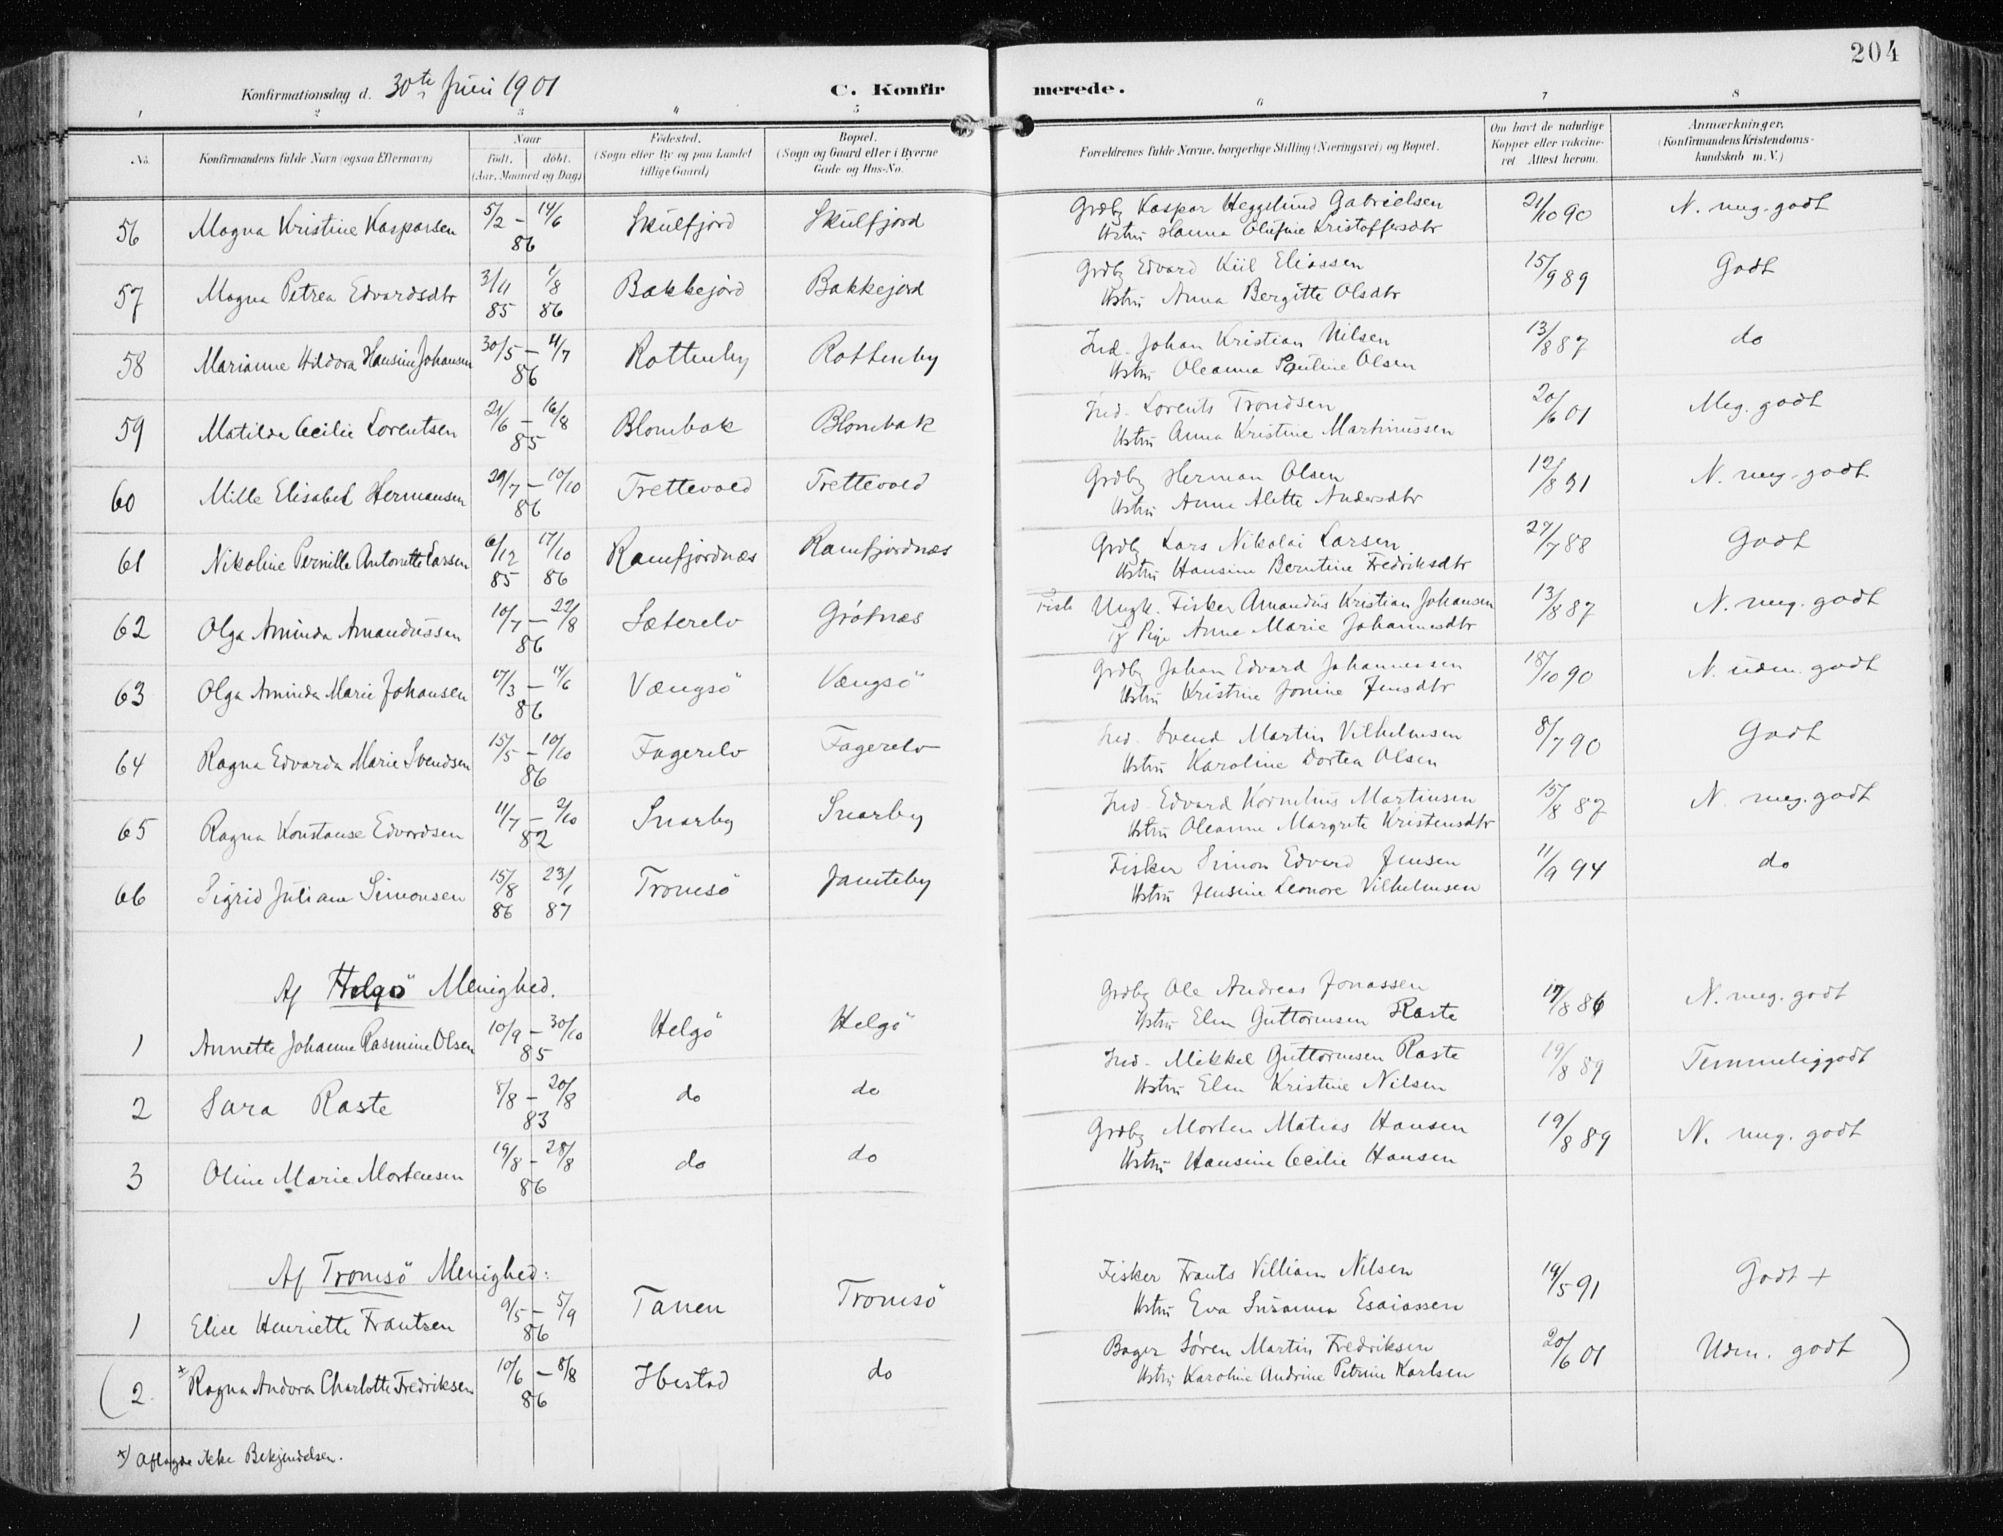 204
Konfirmationsdag d. 30te Juni 1901
C. Konfirmerede.
1 2 3 4 5 6 7 8
No. Konfirmandens fulde Navn (ogsaa Efternavn) Naar født. døbt. (Aar, Maaned og Dag) Fødested. (Sogn eller By og paa Landet tillige Gaard) Bopæl. (Sogn og Gaard eller i Byerne Gade og Hus-No. Forældrenes fulde Navne, borgerlige Stilling (Næringsvei) og Bopæl. Om havt de naturlige Kopper eller vakcineret Attest herom. Anmærkninger, (Konfirmandens Kristendomskundskab m. V.)
56 Magna Kristine Kasparsen 5/2 – 14/6 86 Skulfjord Skulfjord Grdbr Kaspar Heggelund Gabrielsen 21/10 90 N. meg. godt
Hstru Hanna Olufine Kristoffersdtr
57 Magna Petrea Edvardsdtr 3/11 85 1/8 86 Bakkejord Bakkejord Grdbr Edvard Kiil Eliassen 15/9 89 Godt
Hstru Anna Bergitte Olsdtr
58 Marianne Hildora Hansine Johansen 30/5 – 11/7 86 Rottenby Rottenby Ind. Johan Kristian Nilsen 13/8 87 do
Hstru Oleanna Pauline Olsen
59 Matilde Cecilie Lorentsen 21/6 – 16/8 85 Blombak Blombak Ind. Lorents Trondsen 20/6 01 Meg. godt
Hstru Anna Kristine Martinussen
60 Mille Elisabet Hermansen 29/7 – 10/10 86 Trettevold Trettevold Grdbr Herman Olsen 12/8 91 N. meg. godt
Hstru Anne Alette Andersdtr
61 Nikoline Pernille Antonette Larsen 6/12 85 17/10 86 Ramfjordnæs Ramfjordnæs Grdbr Lars Nikolai Larsen 27/7 88 Godt
Hstru Hansine Berntine Fredriksdtr
62 Olga Aminda Amandussen 10/7 – 22/8 86 Sæterelv Grøtnæs Ungk. Fisker Amandus Kristian Johansen 13/8 87 N. meg. godt
g Pige Anne Marie Johannesdtr
63 Olga Aminda Marie Johansen 17/3 – 14/6 86 Vængsö Vængsö Grdbr Johan Edvard Johannessen 18/10 90 N. udm. godt
Hstru Kristine Jonine Jensdtr
64 Ragna Edvarda Marie Svendsen 15/5 – 10/10 86 Fagerelv Fagerelv Ind. Svend Martin Vilhelmsen 8/7 90 Godt
Hstru Karoline Dortea Olsen
65 Ragna Konstanse Edvardsen 11/7 – 2/10 82 Snarby Snarby Ind. Edvard Kornelius Martinsen 15/8 87 N. meg. godt
Hstru Oleanne Margrete Kristensdtr
66 Sigrid Juliane Simonsen 15/8 86 23/1 87 Tromsö Jamteby Fisker Simon Edvard Jensen 11/9 94 do
Hstru Jensine Leonore Vilhelmsen
Af Helgö Menighed.
1 Annette Johanne Rasmine Olsen 10/9 – 30/10 85 Helgö Helgö Grdbr Ole Andreas Jonassen 17/8 86 N. meg. godt
Hstru Elen Guttormsen Raste
2 Sara Raste 8/8 – 20/8 83 do do Ind. Mikkel Guttormsen Raste 19/8 89 Temmeliggodt
Hstru Elen Kristine Nilsen
3 Oline Marie Mortensen 19/8 – 28/8 86 do do Grdbr Morten Matias Hansen 19/8 89 N. meg. godt
Hstru Hansine Cecilie Hansen
Af Tromsö Menighed:
1 Elise Henriette Frantsen 9/5 – 5/9 86 Tanen Tromsö Fisker Frants Villiam Nilsen 19/5 91 Godt +
Hstru Eva Susanna Esaiassen
(2. x Ragna Andora Charlotte Fredriksen 10/6 – 8/8 86 Ibestad do Bager Søren Martin Fredriksen 20/6 01 Udm. godt )
Hstru Karoline Andrine Petrine Karlsen
x) Aflagde ikke Bekjendelsen.